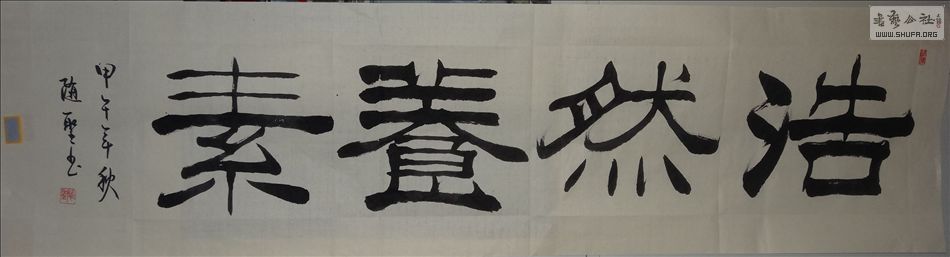 浩然養素
甲午年秋
随聖书
书艺公社
WWW.SHUFA.ORG